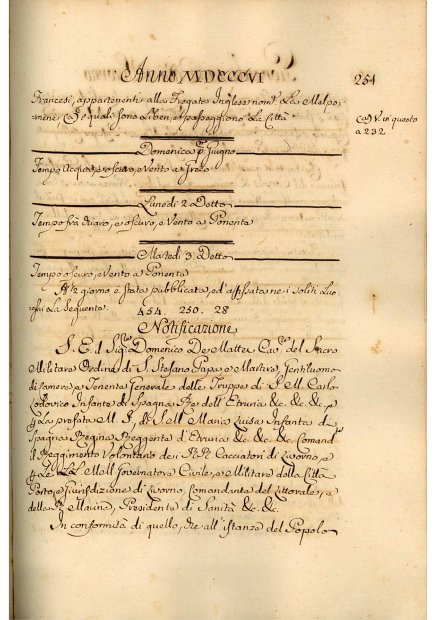 Anno MDCCCVI
254
Francesi, appartenenti alla Fregata Inglese nom.ª La Melpo-
mene, (a) e quali sono Liberi, e passeggiono La Città
(a) V. in questo
a 232
Domenica p.º Giugno
Tempo Acqua, e oscuro, e Vento a Greco
Lunedi 2 Detto
Tempo frà chiaro, e oscuro, e Vento a Ponente
Martedi 3 Detto
Tempo oscuro, e Vento a Ponente
A ½ giorno è stata pubblicata, ed affissata nei soliti Luo-
ghi La Seguente
454. 250. 28
Notificazione
S. E. il Sig.re Domenico De Mattei Cav.re del Sacro
Militare Ordine di S. Stefano Papa, e Martire, Gentiluomo
di Camera, e Tenente Generale delle Truppe di S. M. Carlo
Lodovico Infante di Spagna Re dell'Etruria &c. &c. &c. e
p La prefata M. S. Maria Luisa Infanta di
Spagna Regina Reggente d'Etruria &c. &c. &c. Comand.
il Reggimento Volontario dei RR. Cacciatori di Livorno, e
p Le LL. MM. Governatore Civile, e Militare della Città
Porto, e Giurisdizione di Livorno, Comandante del Littorale, e
della R. Marina, Presidente di Sanità &c. &c.
In conformità di quello, che all'istanze del Popolo